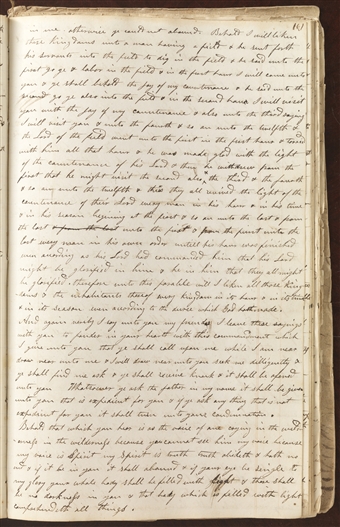 101
in me otherwise ye could not abound. Behold I will liken
these kingdoms unto a man having a field & he sent forth
his servants into the field to dig in the field & he said unto the
first go ye & labor in the field & in the first hour I will come unto
you & ye shall behold the joy of my countenance & he said unto the
second go ye also into the field & in the second hour I will visit
you with the joy of my countenance & also unto the third saying
I will visit you & unto the fourth & so on unto the twelfth &
the Lord of the field went unto the first in the first hour & tarried
with him all that hour & he was made glad with the light
of the countenance of his Lord & then he withdrew from the
first that he might visit the second also & the third & the fourth
& so on unto the twelfth & thus they all received the light of the
countenance of their Lord every man in his hour & in his time
& in his season begining at the first & so on unto the last & from
the last unto the first & from the first unto the
last every man in his own order untill his hour was finished
even according as his Lord had commanded him that his Lord
might be glorified in him & he in him that they all might
be glorified. therefore unto this parable will I liken all those kingdoms
& the inhabitants thereof every kingdom in its hour & in its time
& in its season even according to the decree which God hath made.
And again verily I say unto you my friends I leave these sayings
with you to ponder in your hearts with this commandment which
I give unto you that ye shall call upon me while I am near
draw near unto me & I will draw near unto you seek me dilligently &
ye shall find me ask & ye shall receive knock & it shall be opened
unto you Whatsoever ye ask the father in my name it shall be given
unto you that is expedient for you & if ye ask any thing that is not
expedient for you it shall turn unto your condemnation.
Behold that which you hear is as the voice of one crying in the wild
erness in the wilderness because you cannot see him my voice because
my voice is Spirit my Spirit is truth truth abideth & hath no
end & if it be in you it shall abound & if your eye be single to
my glory your whole body shall be filled with light & there shall
be no darkness in you & that body which is filled with light
comprehendeth all things.